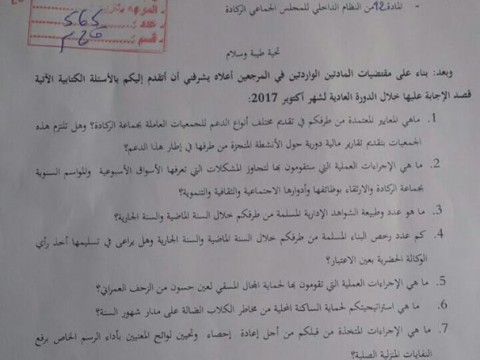 المادة 12 من النظام الداخلي للمجلس الجماعي الركادة
565
تحية طيبة وسلام
وبعد: بناء على مقتضيات المادتين الواردتين في المرجعين أعلاه يشرفني أن أتقدم إليكم بالأسئلة الكتابية الآتية
قصد الإجابة عليها خلال الدورة العادية لشهر أكتوبر 2017:
1. ماهي المعايير المعتمدة من طرفكم في تقديم مختلف أنواع الدعم للجمعيات العاملة بجماعة الركادة؟ وهل تلتزم هذه
الجمعيات بتقديم تقارير مالية دورية حول الأنشطة المنجزة من طرفها في إطار هذا الدعم؟
2. ما هي الإجراءات العملية التي ستقومون بها لتجاوز المشكلات التي تعرفها الأسواق الأسبوعية والمواسم السنوية
بجماعة الركادة والارتقاء بوظائفها وأدوارها الاجتماعية والثقافية والتنموية؟
3. ما هو عدد وطبيعة الشواهد الإدارية المسلمة من طرفكم خلال السنة الماضية والسنة الجارية؟
4. كم عدد رخص البناء المسلمة من طرفكم خلال السنة الماضية والسنة الجارية وهل يراعى في تسليمها أخذ رأي
الوكالة الحضرية بعين الاعتبار؟
5. ما هي الإجراءات العملية التي تقومون بها لحماية المجال المسقي لعين حسون من الزحف العمراني؟
6. ما هي استراتيجيتكم لحماية الساكنة المحلية من مخاطر الكلاب الضالة على مدار شهور السنة؟
7. ما هي الإجراءات المتخذة من قبلكم من أجل إعادة إحصاء وتحيين لوائح المعنيين بأداء الرسم الخاص برفع
النفايات المنزلية الصلبة؟